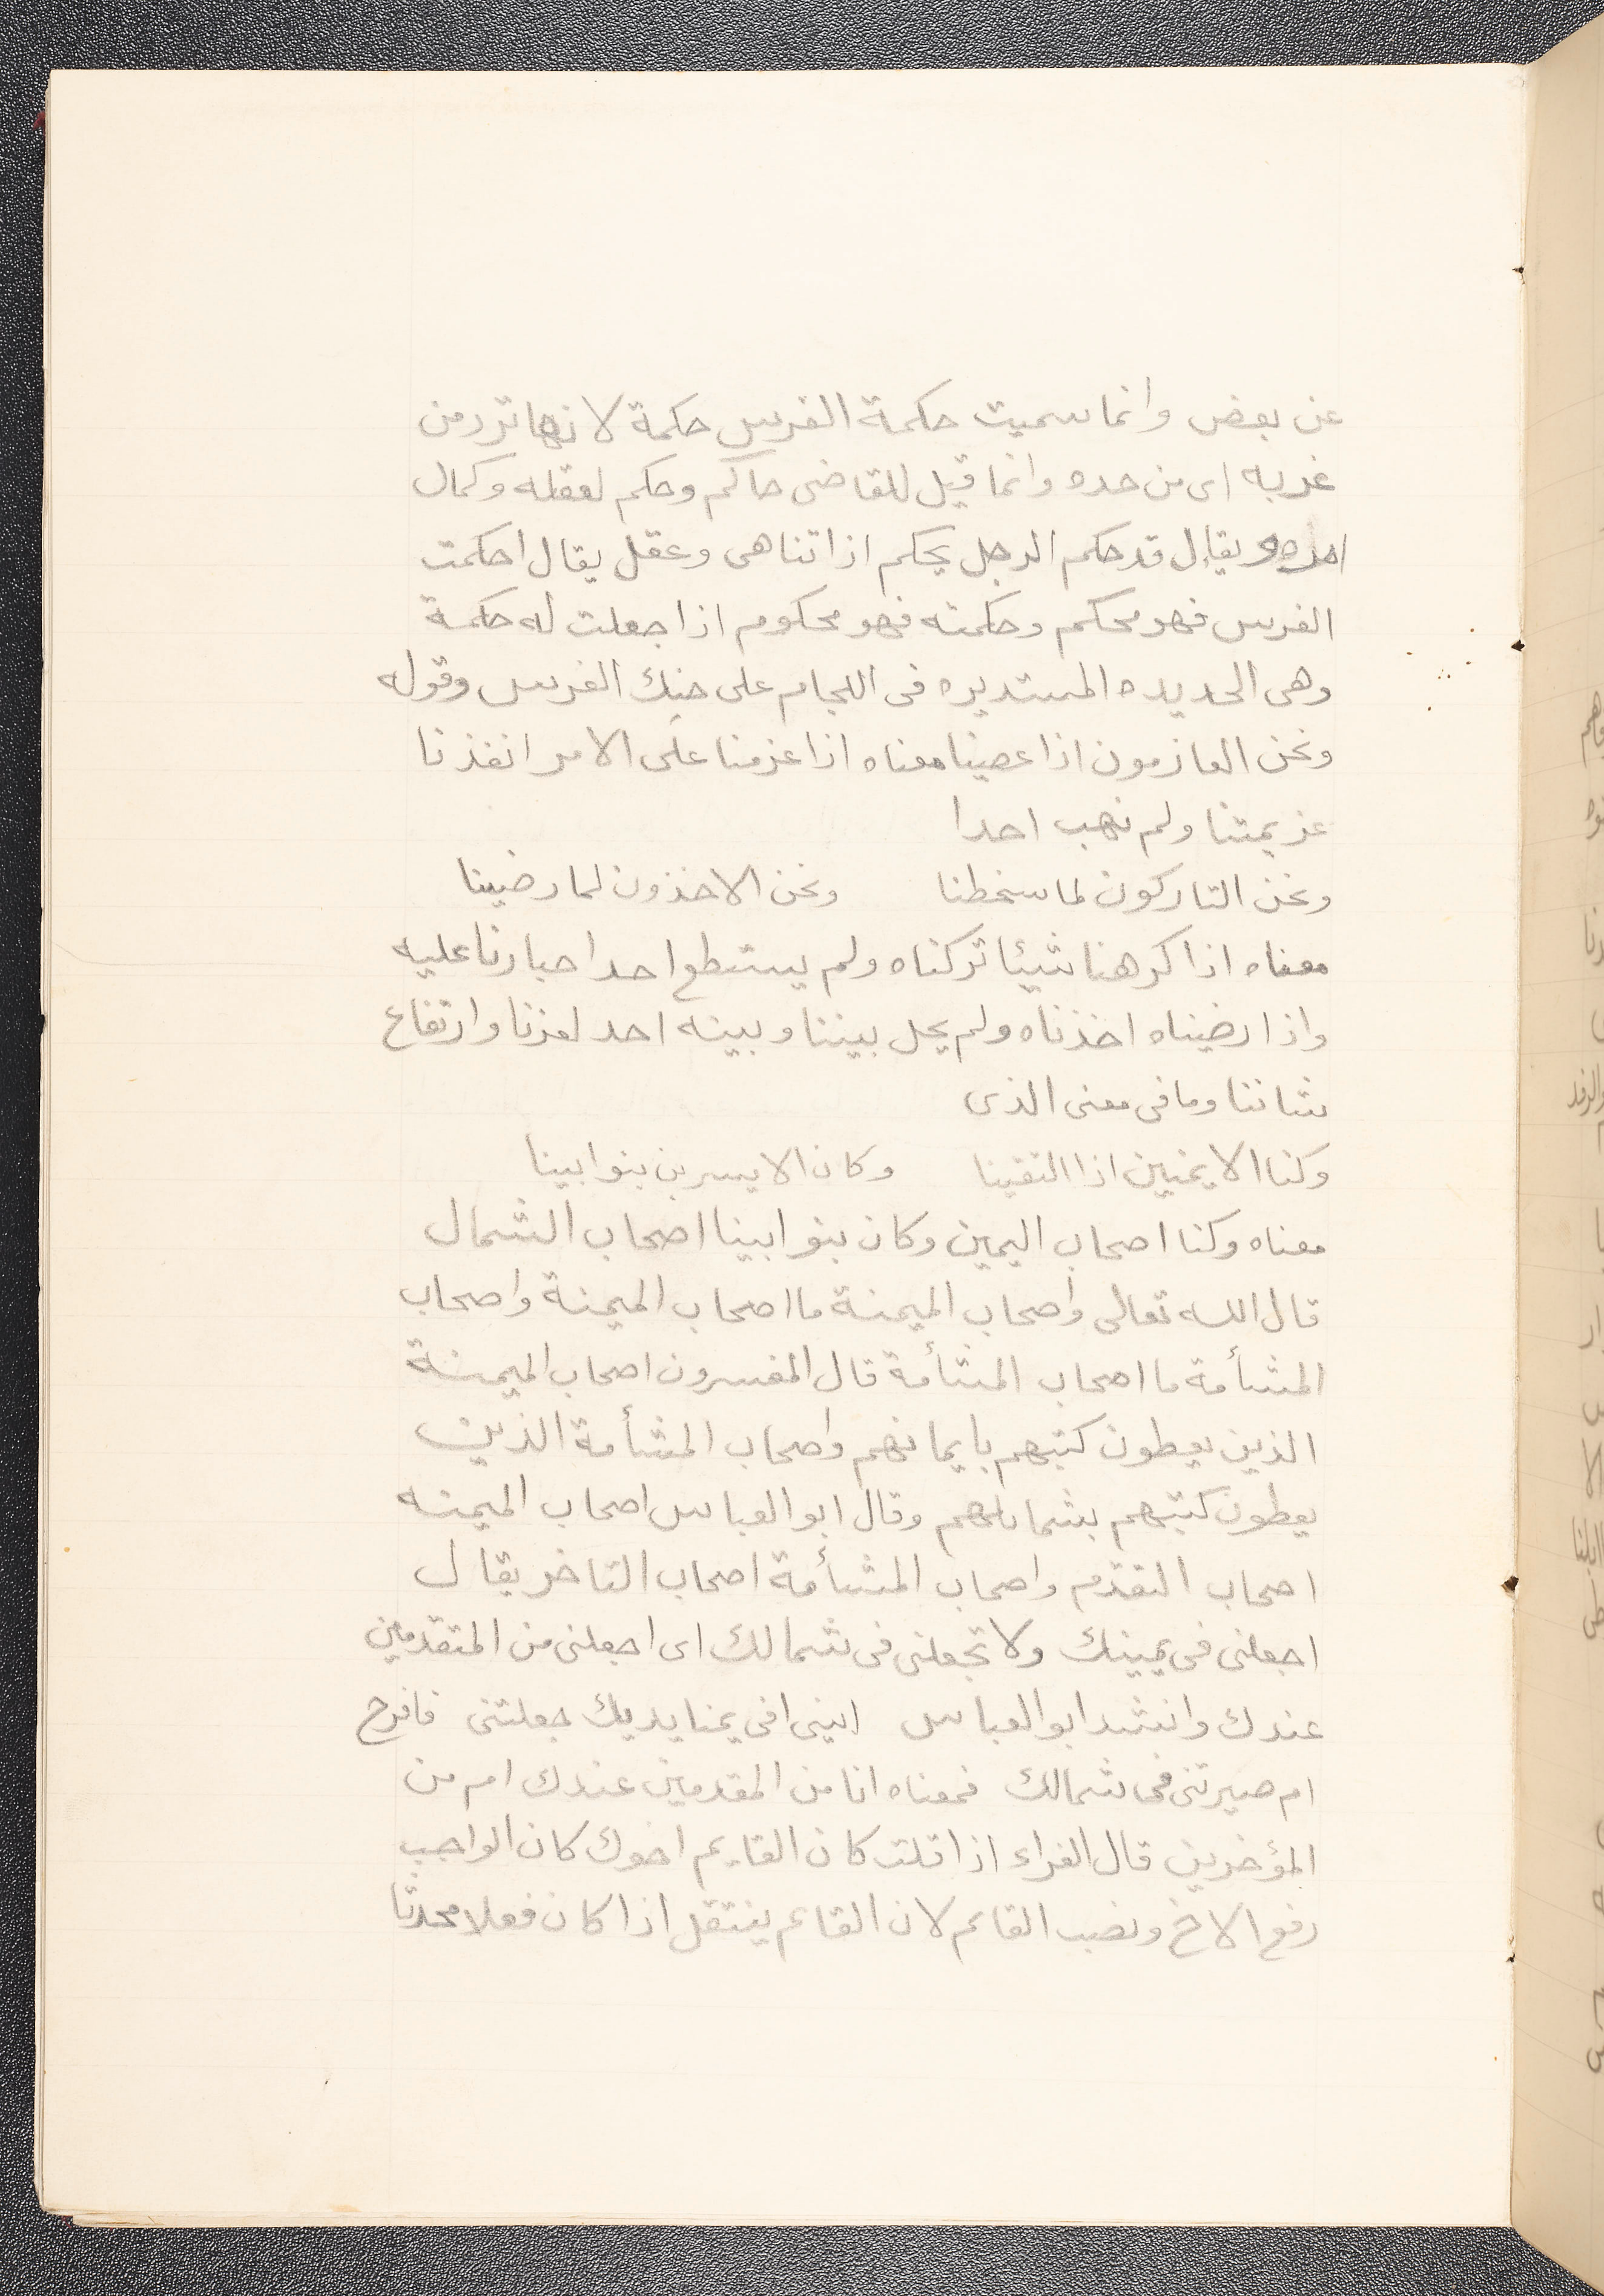 عن بعض وانما سميت حكمة الفرس حكمة لانها ترد من
غربه اى من حده وانما قيل للقاضى حاكم وحكم لعقله وكمال
امره ويقال قد حكم الرجل يحكم اذا تناهى وعقل يقال احكمت
الفرس فهو محكم وحكمته فهو محكوم اذا جعلت له حكمة
وهى الحديده المستديره فى اللجام على حنك الفرس وقوله
ونحن العازمون اذا عصينا معناه اذا عزمنا على الامر انفذنا
عزيمتنا ولم نهب احدا
ونحن التاركون لما سخطنا ونحن الاخذون لما رضينا
معناه اذا كرهنا شيئا تركناه ولم يستطع احد اجبارنا عليه
واذا رضيناه اخذناه ولم يحل بيننا وبينه احد لعزنا وارتفاع
شاننا وما فى معنى الذى
وكنا الايمنين اذا التقينا وكان الايسرين بنو ابينا
معناه وكنا اصحاب اليمين وكان بنو ابينا اصحاب الشمال
قال الله تعالى واصحاب الميمنة ما اصحاب الميمنة واصحاب
المشأمة ما اصحاب المشأمة قال المفسرون اصحاب الميمنة
الذين يعطون كتبهم بايمانهم واصحاب المشأمة الذين
يعطون كتبهم بشمائلهم وقال ابو العباس اصحاب الميمنه
اصحاب التقدم واصحاب المشأمة اصحاب التاخر يقال
اجعلنى فى يمينك ولا تجعلنى فى شمالك اى اجعلنى من المتقدمين
عندك وانشد ابو العباس ابينى افى يمنا يديك جعلتنى فافرح
ام صيرتنى فى شمالك فمعناه انا من المقدمين عندك ام من
المؤخرين قال الفراء اذا قلت كان القايم اخوك كان الواجب
رفع الاخ ونصب القائم لان القائم ينتقل اذا كان فعلا محدثا